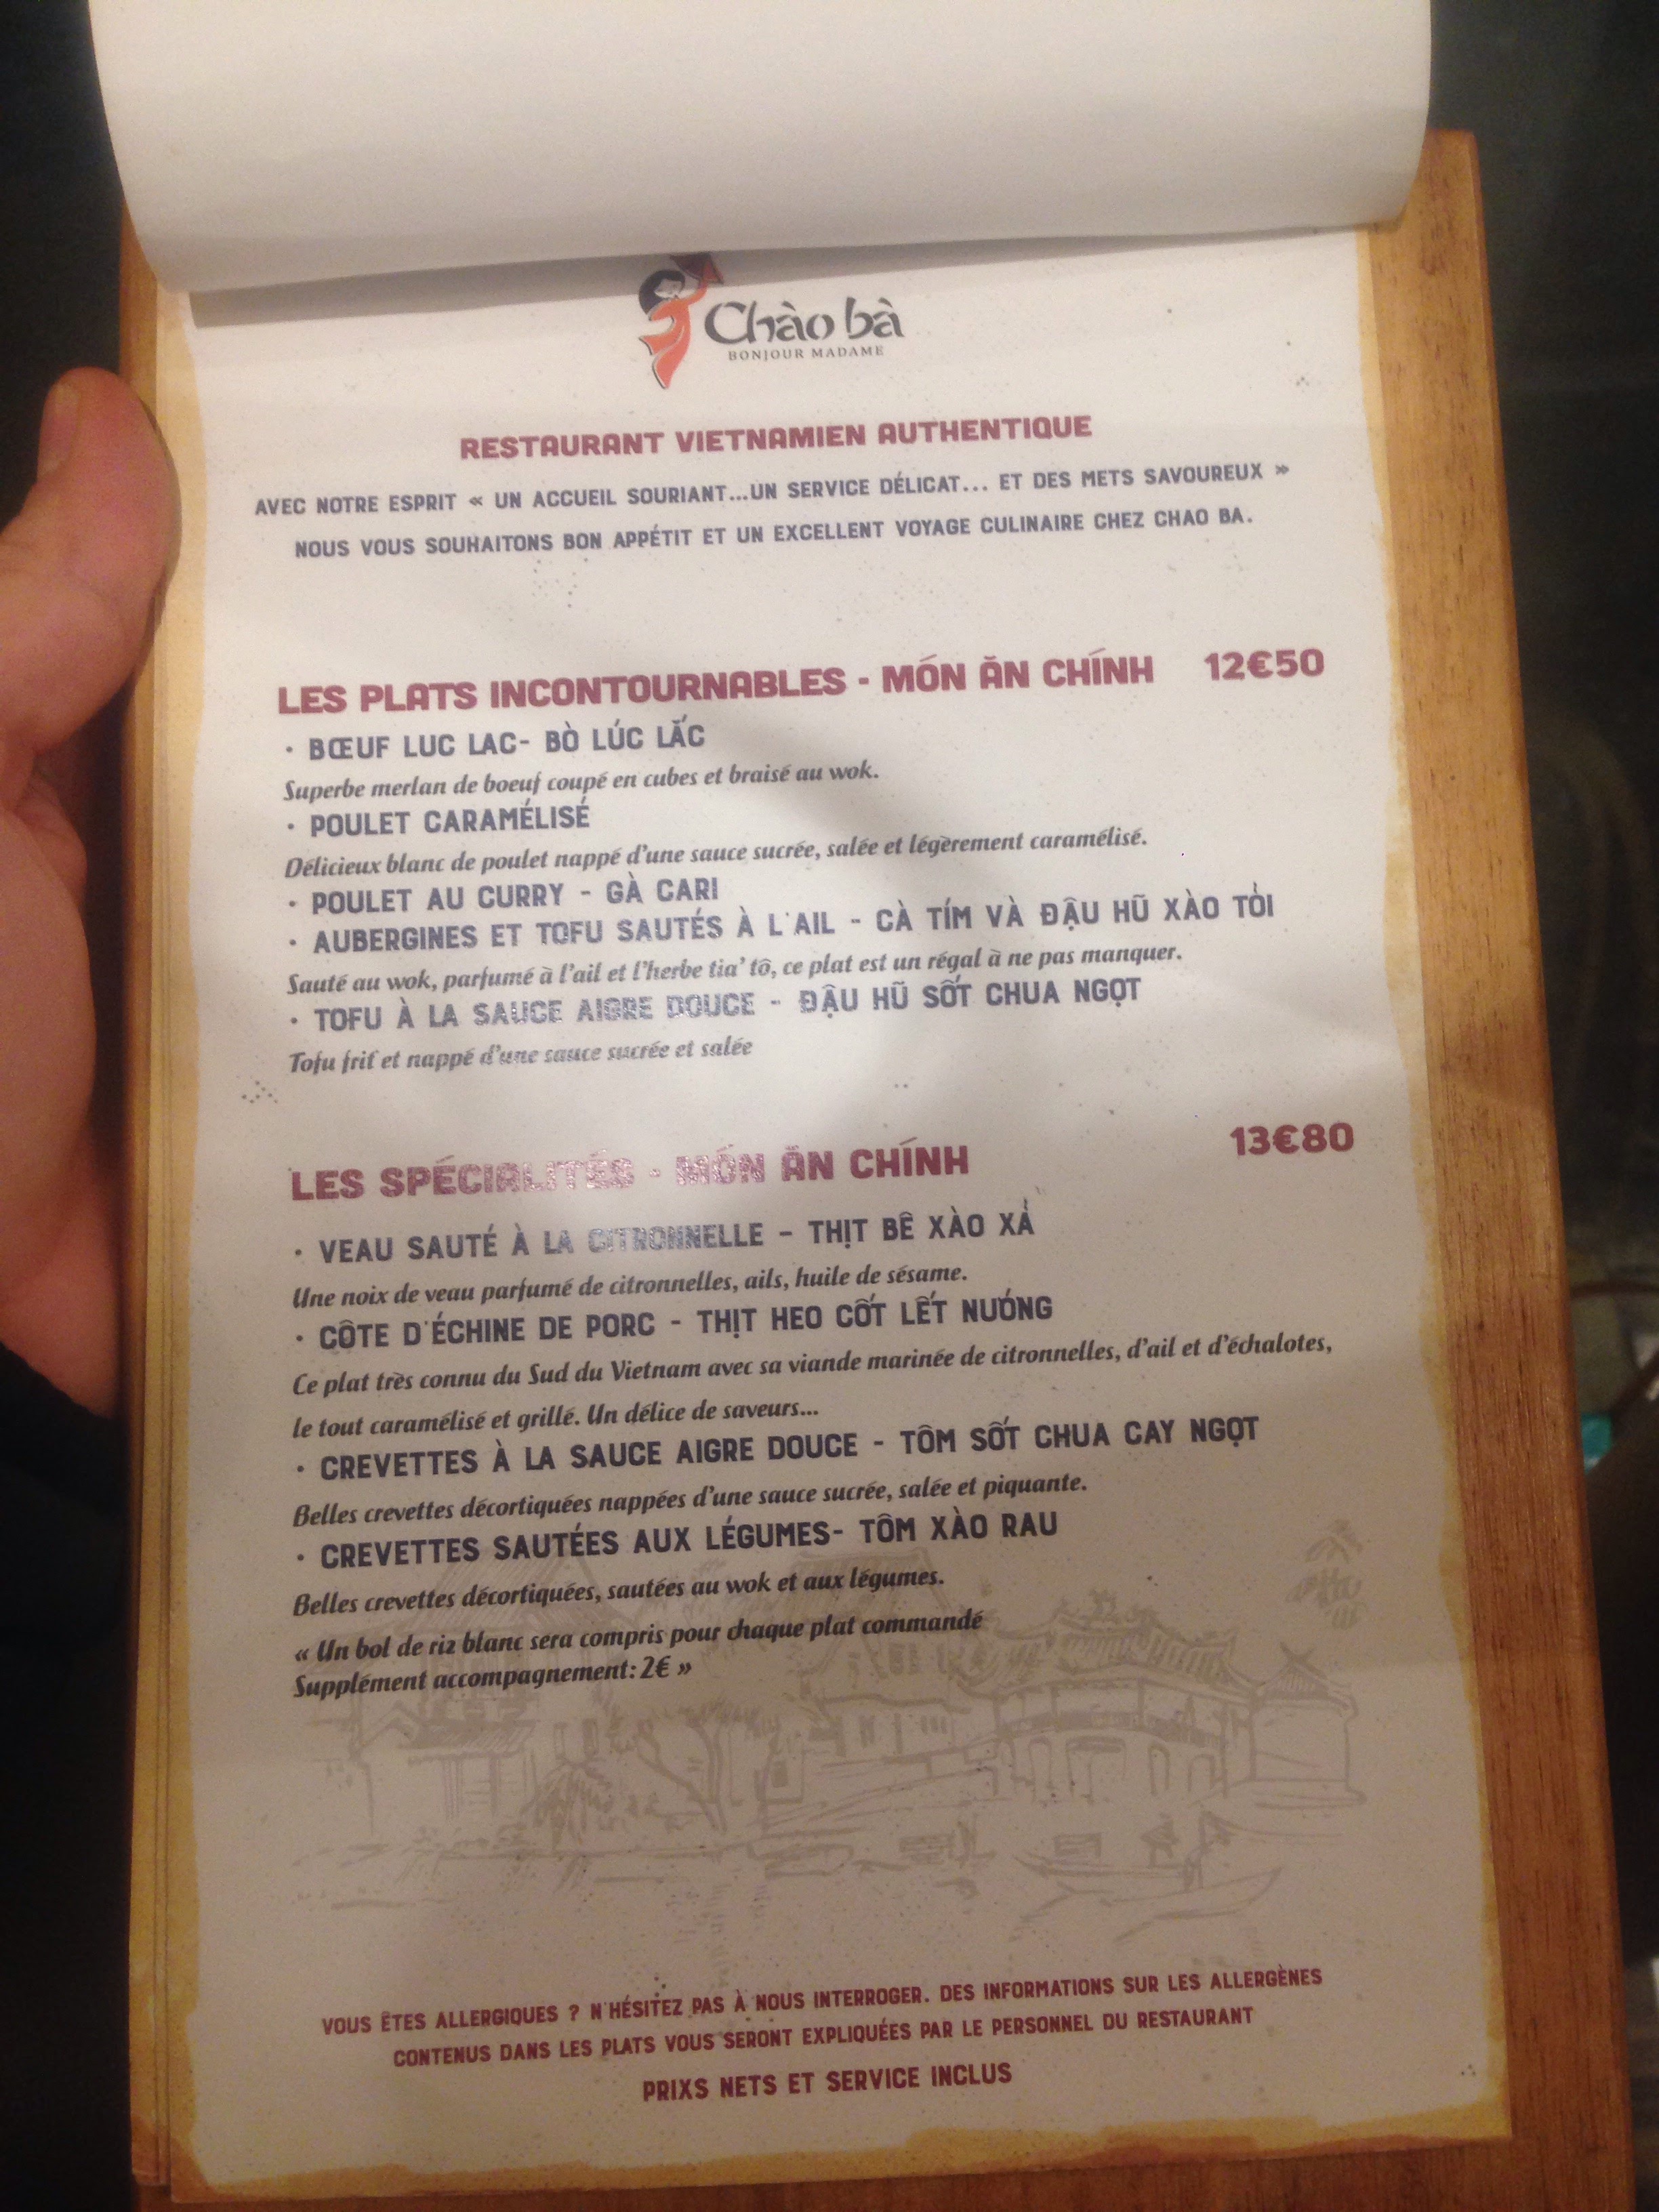 Chào bà
BONJOUR MADAME
RESTAURANT VIETNAMIEN AUTHENTIQUE
AVEC NOTRE ESPRIT « UN ACCUEIL SOURIANT...UN SERVICE DÉLICAT... ET DES METS SAVOUREUX »
NOUS VOUS SOUHAITONS BON APPÉTIT ET UN EXCELLENT VOYAGE CULINAIRE CHEZ CHAO BA.
LES PLATS INCONTOURNABLES - MÓN ĂN CHÍNH 12€50
· BŒUF LUC LAC- BÒ LÚC LẮC
Superbe merlan de boeuf coupé en cubes et braisé au wok.
· POULET CARAMÉLISÉ
Délicieux blanc de poulet nappé d'une sauce sucrée, salée et légèrement caramélisé.
· POULET AU CURRY - GÀ CARI
· AUBERGINES ET TOFU SAUTÉS À L'AIL - CÀ TÍM VÀ ĐẬU HŨ XÀO TỎI
Sauté au wok, parfumé à l'ail et l'herbe tia' tô, ce plat est un régal à ne pas manquer.
· TOFU À LA SAUCE AIGRE DOUCE - ĐẬU HŨ SỐT CHUA NGỌT
Tofu frit et nappé d'une sauce sucrée et salée
LES SPÉCIALITÉS - MÓN ĂN CHÍNH 13€80
· VEAU SAUTÉ À LA CITRONNELLE - THỊT BÊ XÀO XẢ
Une noix de veau parfumé de citronnelles, ails, huile de sésame.
· CÔTE D'ÉCHINE DE PORC - THỊT HEO CỐT LẾT NƯỚNG
Ce plat très connu du Sud du Vietnam avec sa viande marinée de citronnelles, d'ail et d'échalotes,
le tout caramélisé et grillé. Un délice de saveurs...
· CREVETTES À LA SAUCE AIGRE DOUCE - TÔM SỐT CHUA CAY NGỌT
Belles crevettes décortiquées nappées d'une sauce sucrée, salée et piquante.
· CREVETTES SAUTÉES AUX LÉGUMES- TÔM XÀO RAU
Belles crevettes décortiquées, sautées au wok et aux légumes.
« Un bol de riz blanc sera compris pour chaque plat commandé
Supplément accompagnement: 2€ »
VOUS ÊTES ALLERGIQUES ? N'HÉSITEZ PAS À NOUS INTERROGER. DES INFORMATIONS SUR LES ALLERGÈNES
CONTENUS DANS LES PLATS VOUS SERONT EXPLIQUÉES PAR LE PERSONNEL DU RESTAURANT
PRIXS NETS ET SERVICE INCLUS